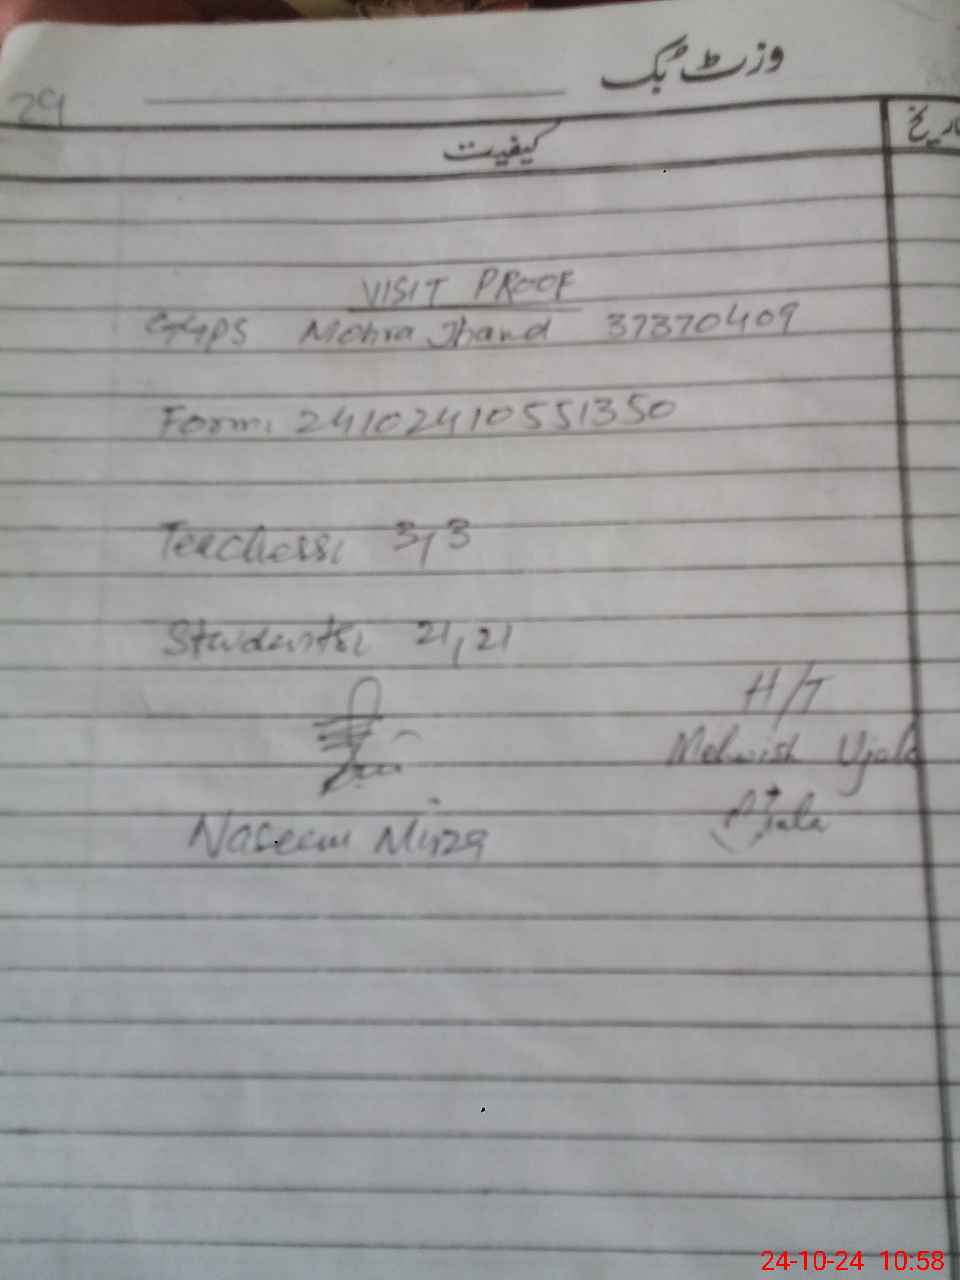 وزٹ بک
29
کیفیت
تاریخ
VISIT PROOF
GGPS Mohra Jhand 37370409
Form: 24102410551350
Teachers: 3, 3
Students: 21, 21
H/T
Mehwish Ujala
Naseem Mirza
24-10-24 10:58